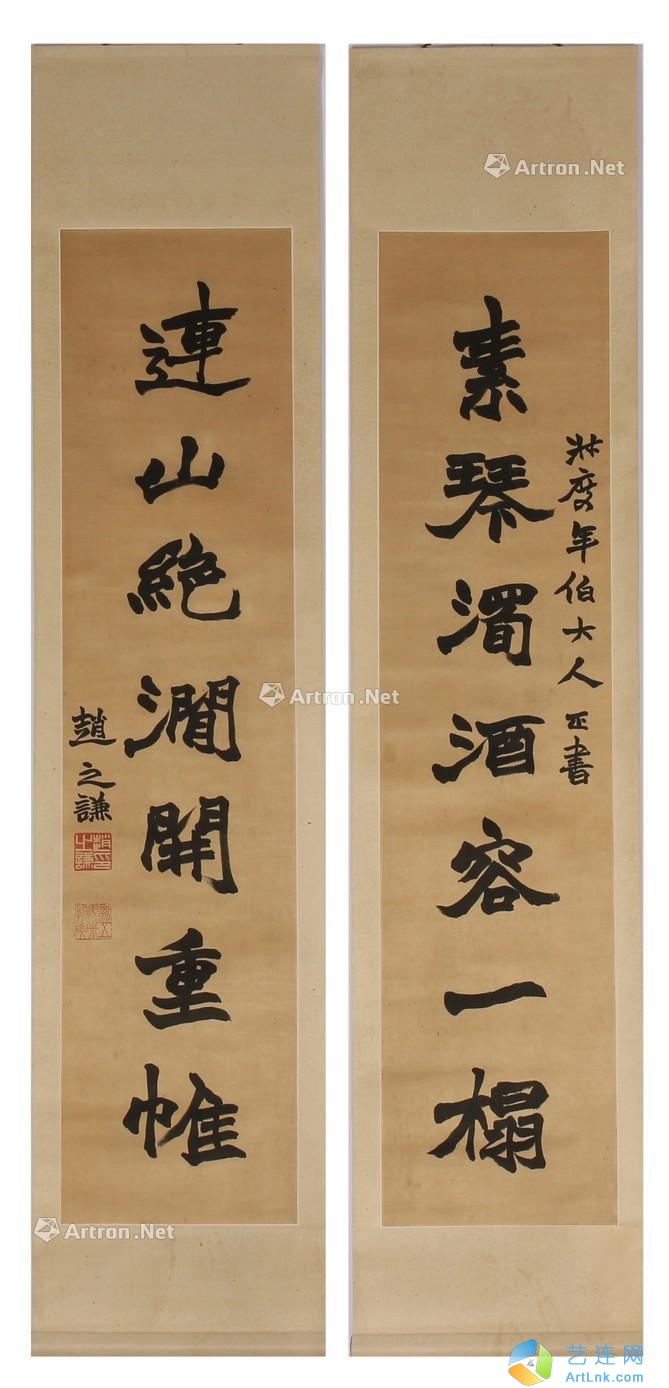 素琴濁酒容一榻
度年伯大人正書
連山絕澗開重帷
趙之謙
趙之謙印
Artron.Net
Artron.Net
Artron.Net
艺连网
ArtLnk.com